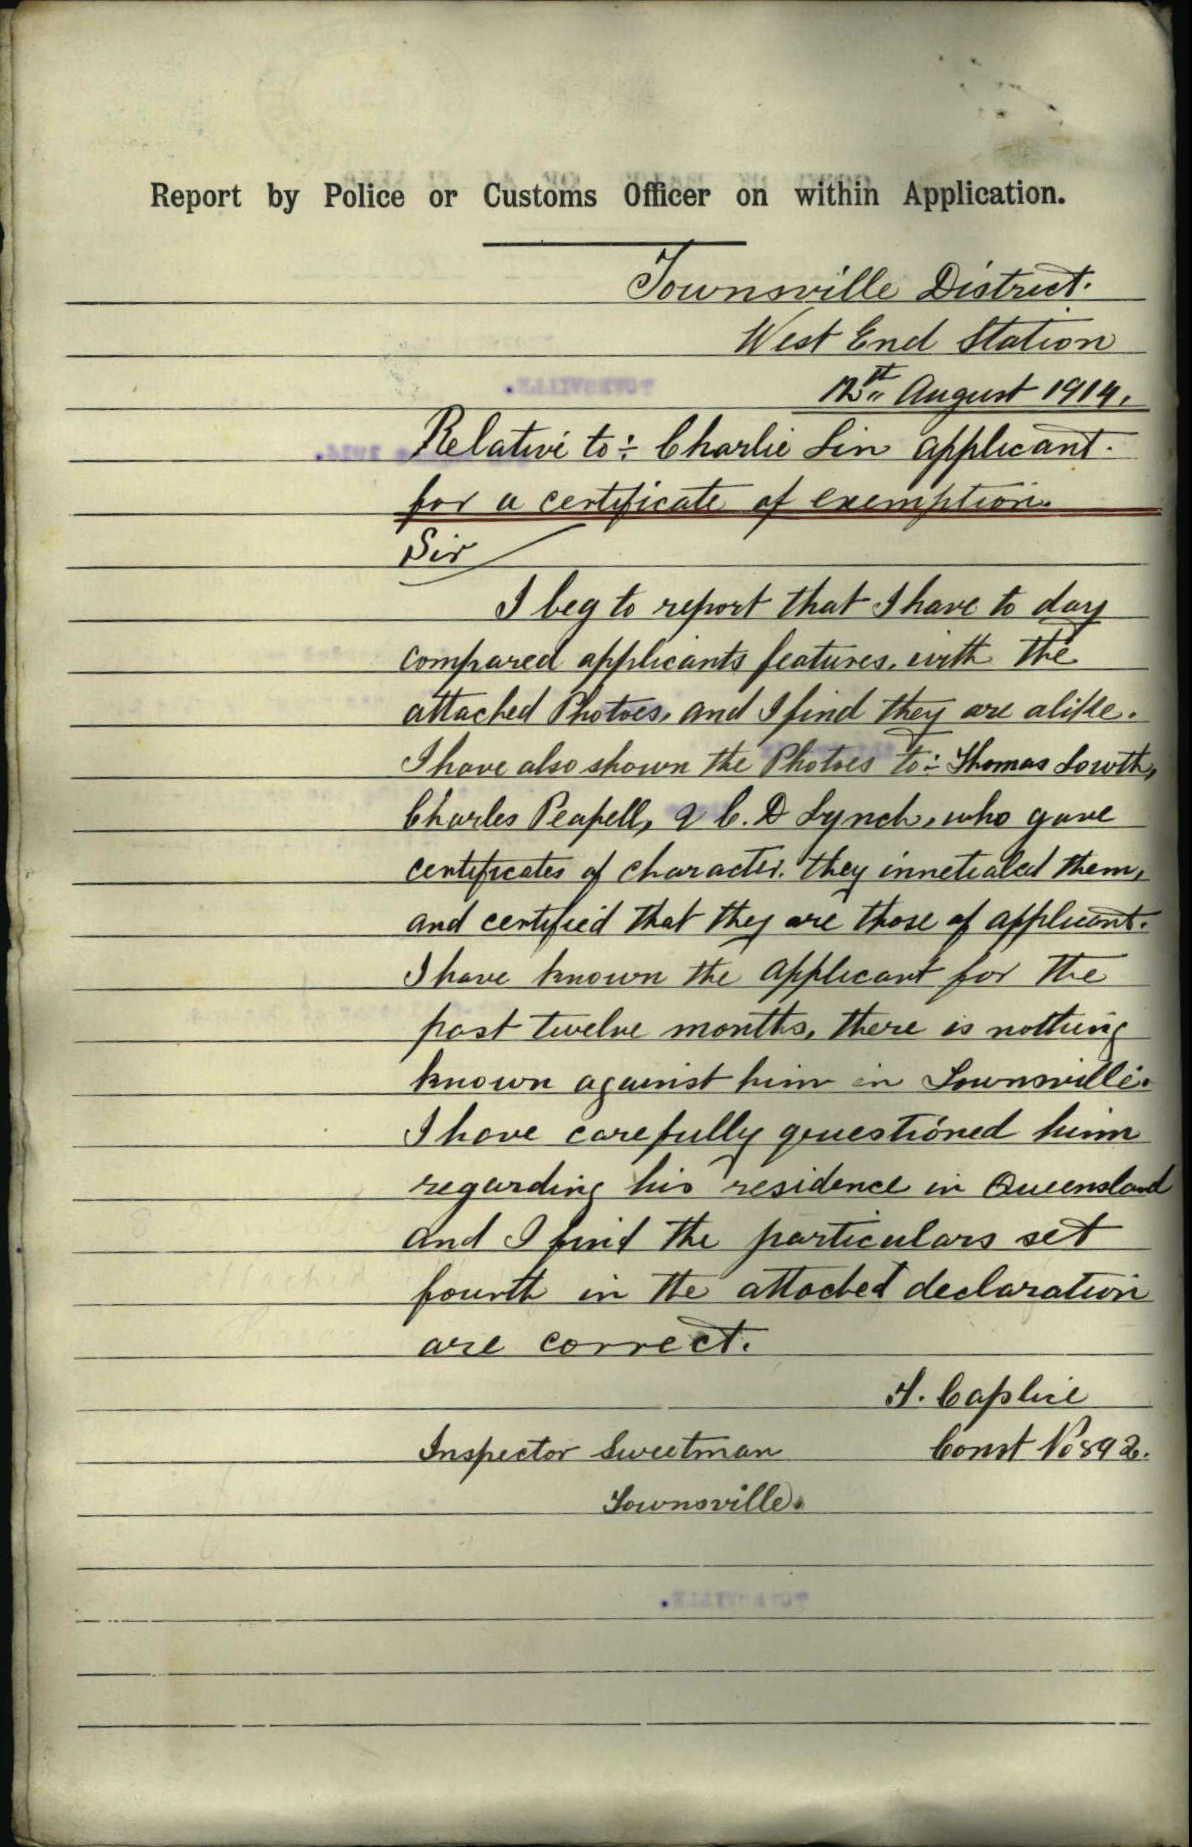 Report by Police or Customs Officer on within Application.
Townsville District.
West End Station
12th August 1914.
Relative to :- Charlie Sin applicant.
for a certificate of exemption.
Sir
I beg to report that I have to day
compared applicants features, with the
attached Photoes, and I find they are alike.
I have also shown the Photoes to :- Thomas Lowth,
Charles Peapell, & C. D Lynch, who gave
certificates of character. they innetialed them,
and certified that they are those of applicant.
I have known the applicant for the
past twelve months, there is nothing
known against him in Townsville.
I have carefully questioned him
regarding his residence in Queensland
and I find the particulars set
fourth in the attached declaration
are correct.
T. Caplice
Inspector Sweetman Const No 892.
Townsville.
TOWNSVILLE.